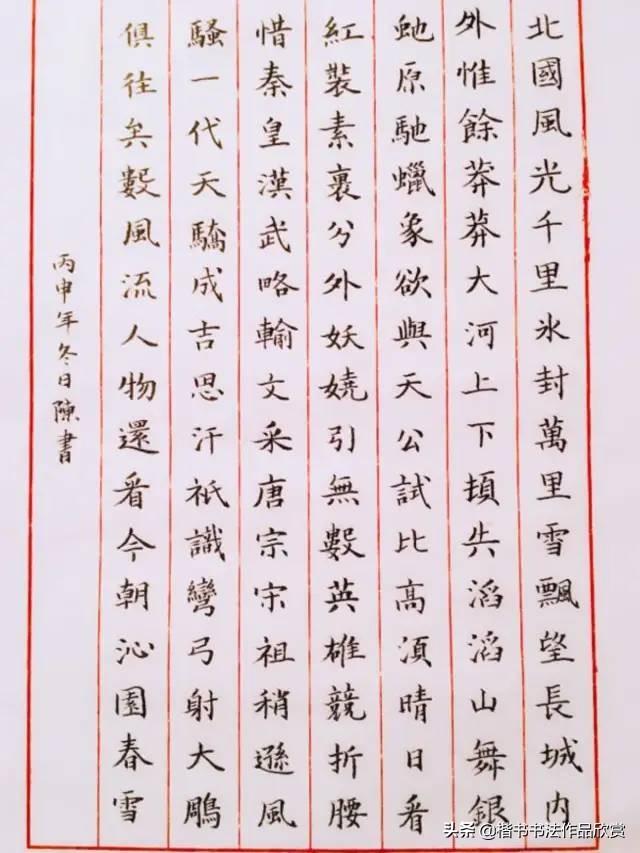 北國風光千里氷封萬里雪飄望長城内
外惟餘莽莽大河上下頓失滔滔山舞銀
虵原馳蠟象欲與天公試比高須晴日看
紅裝素裹分外妖嬈引無數英雄競折腰
惜秦皇漢武略輸文采唐宗宋祖稍遜風
騷一代天驕成吉思汗祇識彎弓射大鵰
俱往矣數風流人物還看今朝沁園春雪
丙申年冬日陳書
头条@楷书书法作品欣赏